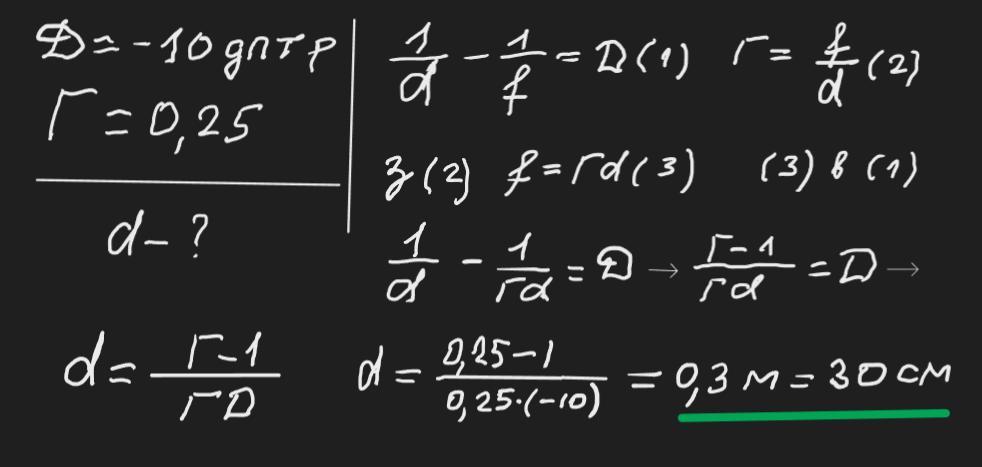 D = -10 дптр
Г = 0,25
d - ?
1/d - 1/f = D (1) Г = f/d (2)
з (2) f = Гd (3) (3) в (1)
1/d - 1/Гd = D → Г-1/Гd = D →
d = Г-1/ГD d = 0,25-1/0,25·(-10) = 0,3 м = 30 см